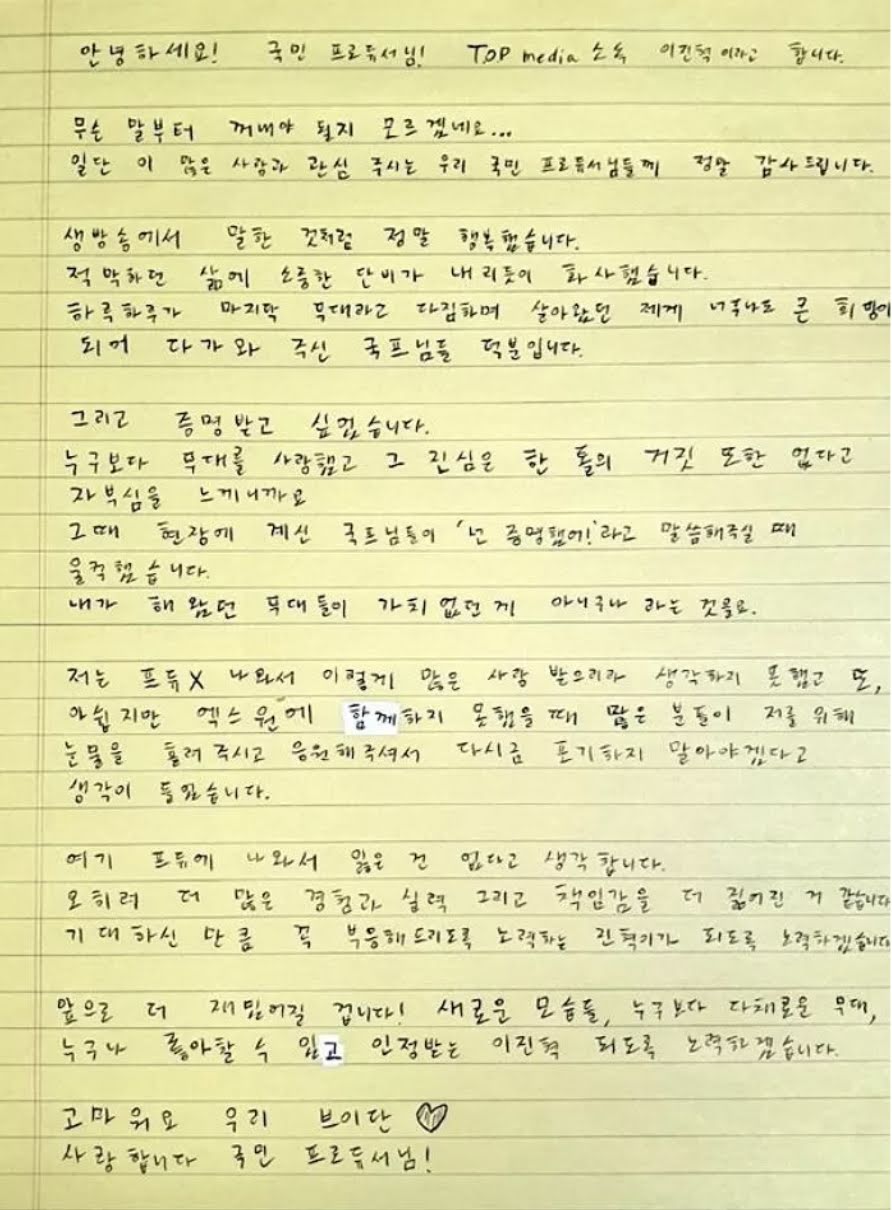 안녕하세요! 국민 프로듀서님! T.O.P media 소속 이진혁이라고 합니다.
무슨 말부터 꺼내야 될지 모르겠네요...
일단 이 많은 사랑과 관심 주시는 우리 국민 프로듀서님들께 정말 감사드립니다.
생방송에서 말한 것처럼 정말 행복했습니다.
적막하던 삶에 소중한 단비가 내리듯이 화사했습니다.
하루하루가 마지막 무대라고 다짐하며 살아왔던 제게 너무나도 큰 희망이
되어 다가와 주신 국프님들 덕분입니다.
그리고 증명받고 싶었습니다.
누구보다 무대를 사랑했고 그 진심은 한 톨의 거짓 또한 없다고
자부심을 느끼니까요
그때 현장에 계신 국프님들이 '넌 증명했어!'라고 말씀해주실 때
울컥했습니다.
내가 해 왔던 무대들이 가치 없던 게 아니구나 라는 것을요.
저는 프듀X 나와서 이렇게 많은 사랑 받으리라 생각하지 못했고 또,
아쉽지만 엑스원에 함께하지 못했을 때 많은 분들이 저를 위해
눈물을 흘려주시고 응원해주셔서 다시금 포기하지 말아야겠다고
생각이 들었습니다.
여기 프듀에 나와서 잃은 건 없다고 생각합니다.
오히려 더 많은 경험과 실력 그리고 책임감을 더 짊어진 거 같습니다
기대하신 만큼 꼭 부응해드리도록 노력하는 진혁이가 되도록 노력하겠습니다
앞으로 더 재밌어질 겁니다! 새로운 모습들, 누구보다 다채로운 무대,
누구나 좋아할 수 있고 인정받는 이진혁 되도록 노력하겠습니다.
고마워요 우리 브이단 ♡
사랑합니다 국민 프로듀서님!